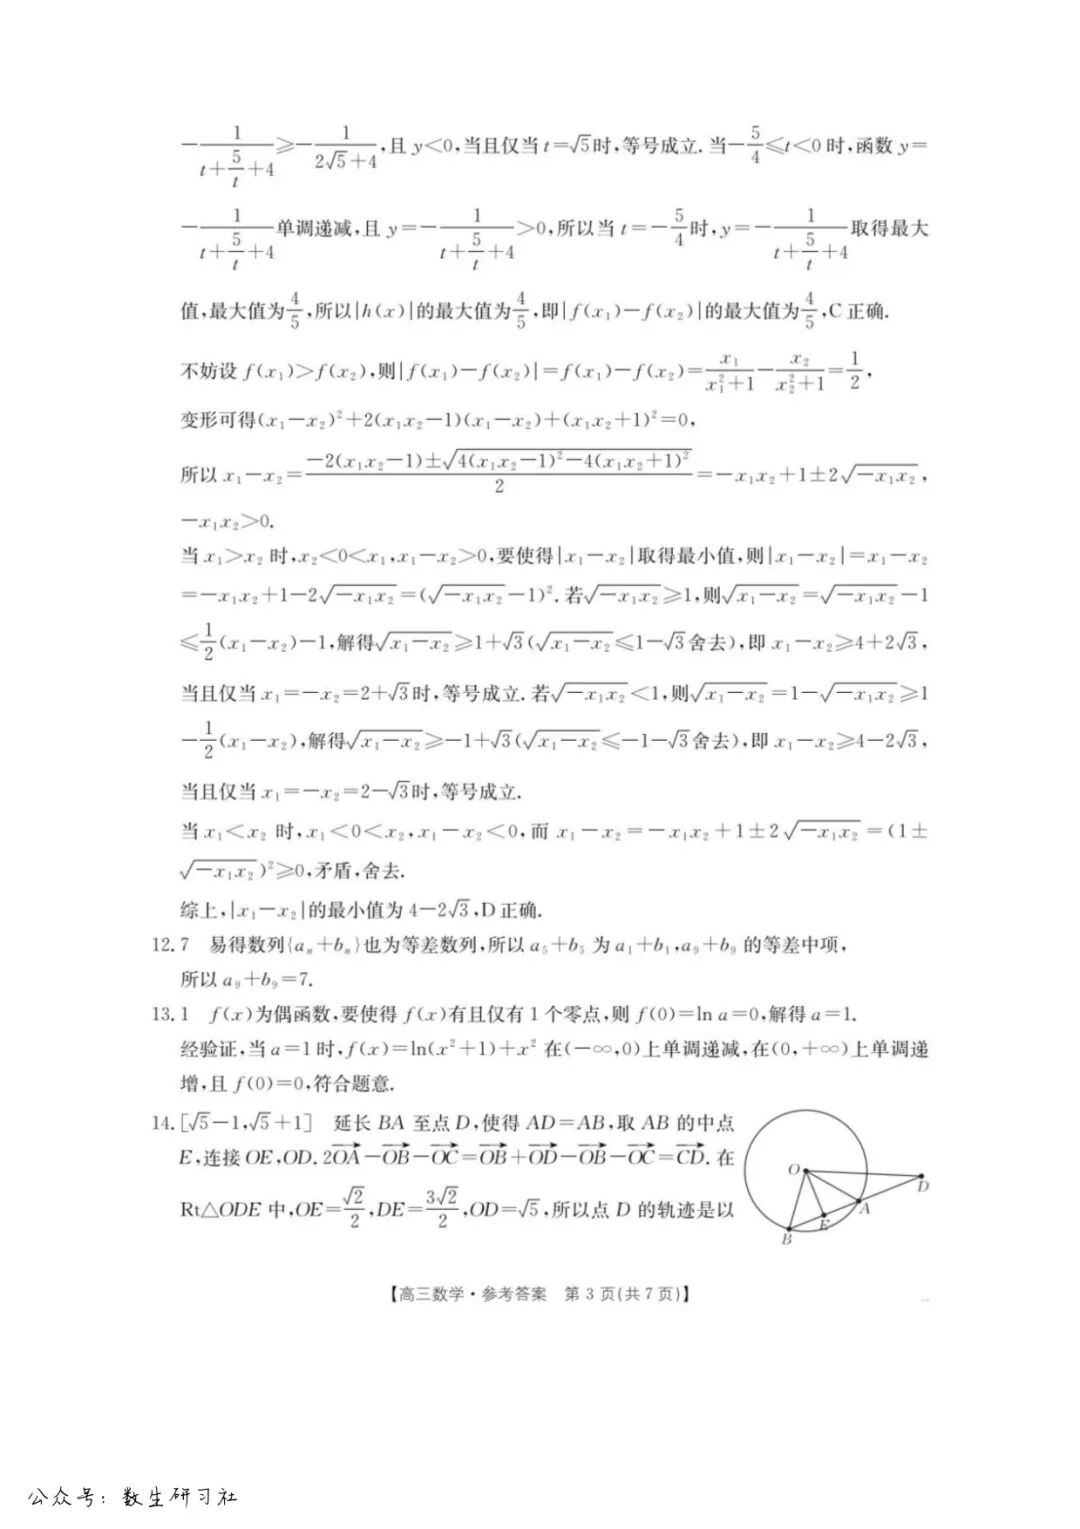 $-\dfrac{1}{t+\dfrac{5}{t}+4}\geqslant-\dfrac{1}{2\sqrt{5}+4}$,且 $y<0$,当且仅当 $t=\sqrt{5}$时,等号成立. 当$-\dfrac{5}{4}\leqslant t<0$ 时,函数 $y=$
$-\dfrac{1}{t+\dfrac{5}{t}+4}$单调递减,且 $y=-\dfrac{1}{t+\dfrac{5}{t}+4}>0$,所以当 $t=-\dfrac{5}{4}$时,$y=-\dfrac{1}{t+\dfrac{5}{t}+4}$取得最大
值,最大值为$\dfrac{4}{5}$,所以$|h(x)|$的最大值为$\dfrac{4}{5}$,即$|f(x_1)-f(x_2)|$的最大值为$\dfrac{4}{5}$,C 正确.
不妨设 $f(x_1)>f(x_2)$,则$|f(x_1)-f(x_2)|=f(x_1)-f(x_2)=\dfrac{x_1}{x_1^2+1}-\dfrac{x_2}{x_2^2+1}=\dfrac{1}{2}$,
变形可得$(x_1-x_2)^2+2(x_1x_2-1)(x_1-x_2)+(x_1x_2+1)^2=0$,
所以 $x_1-x_2=\dfrac{-2(x_1x_2-1)\pm\sqrt{4(x_1x_2-1)^2-4(x_1x_2+1)^2}}{2}=-x_1x_2+1\pm2\sqrt{-x_1x_2}$,
$-x_1x_2>0$.
当 $x_1>x_2$ 时,$x_2<0<x_1$,$x_1-x_2>0$,要使得$|x_1-x_2|$取得最小值,则$|x_1-x_2|=x_1-x_2$
$=-x_1x_2+1-2\sqrt{-x_1x_2}=(\sqrt{-x_1x_2}-1)^2$. 若$\sqrt{-x_1x_2}\geqslant1$,则$\sqrt{x_1-x_2}=\sqrt{-x_1x_2}-1$
$\leqslant\dfrac{1}{2}(x_1-x_2)-1$,解得$\sqrt{x_1-x_2}\geqslant1+\sqrt{3}$($\sqrt{x_1-x_2}\leqslant1-\sqrt{3}$舍去),即 $x_1-x_2\geqslant4+2\sqrt{3}$,
当且仅当 $x_1=-x_2=2+\sqrt{3}$时,等号成立. 若$\sqrt{-x_1x_2}<1$,则$\sqrt{x_1-x_2}=1-\sqrt{-x_1x_2}\geqslant1$
$-\dfrac{1}{2}(x_1-x_2)$,解得$\sqrt{x_1-x_2}\geqslant-1+\sqrt{3}$($\sqrt{x_1-x_2}\leqslant-1-\sqrt{3}$舍去),即 $x_1-x_2\geqslant4-2\sqrt{3}$,
当且仅当 $x_1=-x_2=2-\sqrt{3}$时,等号成立.
当 $x_1<x_2$ 时,$x_1<0<x_2$,$x_1-x_2<0$,而 $x_1-x_2=-x_1x_2+1\pm2\sqrt{-x_1x_2}=(1\pm$
$\sqrt{-x_1x_2})^2\geqslant0$,矛盾,舍去.
综上,$|x_1-x_2|$的最小值为 $4-2\sqrt{3}$,D 正确.
12. 7 易得数列$\{a_n+b_n\}$也为等差数列,所以 $a_5+b_5$ 为 $a_1+b_1$,$a_9+b_9$ 的等差中项,
所以 $a_9+b_9=7$.
13. 1 $f(x)$为偶函数,要使得 $f(x)$有且仅有 1 个零点,则 $f(0)=\ln a=0$,解得 $a=1$.
经验证,当 $a=1$ 时,$f(x)=\ln(x^2+1)+x^2$ 在$(-\infty,0)$上单调递减,在$(0,+\infty)$上单调递
增,且 $f(0)=0$,符合题意.
14. $[\sqrt{5}-1,\sqrt{5}+1]$ 延长 BA 至点 D,使得 $AD=AB$,取 AB 的中点
E,连接 OE,OD. $2\overrightarrow{OA}-\overrightarrow{OB}-\overrightarrow{OC}=\overrightarrow{OB}+\overrightarrow{OD}-\overrightarrow{OB}-\overrightarrow{OC}=\overrightarrow{CD}$. 在
Rt△ODE 中,$OE=\dfrac{\sqrt{2}}{2}$,$DE=\dfrac{3\sqrt{2}}{2}$,$OD=\sqrt{5}$,所以点 D 的轨迹是以
O
D
A
E
B
【高三数学·参考答案 第 3 页(共 7 页)】
公众号：数生研习社